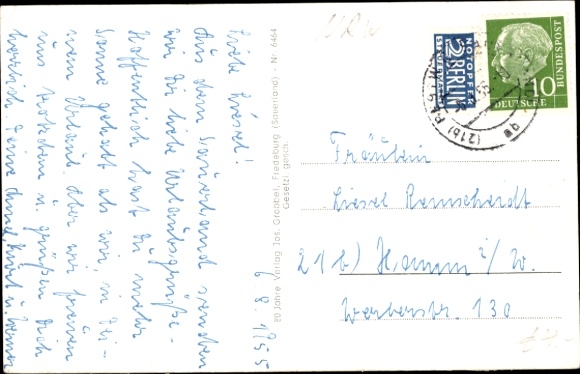 6.8.1955
Liebe Liesel!
Aus dem Sauerland senden
wir Dir liebe Urlaubsgrüße.
Hoffentlich hast Du mehr
Sonne gehabt als wir, in Dei-
nem Urlaub. Aber wir freuen
uns trotzdem u. grüßen Dich
herzlich Deine Kurt u. Werner
80 Jahre Verlag Jos. Grobbel, Fredeburg (Sauerland) · Nr. 6464
Gesetzl. gesch.
NOTOPFER
2 BERLIN
STEUERMARKE
10
DEUTSCHE
BUNDESPOST
(21b)
Fräulein
Liesel Remscheidt
21b) Hamm i/W.
Werlerstr. 130